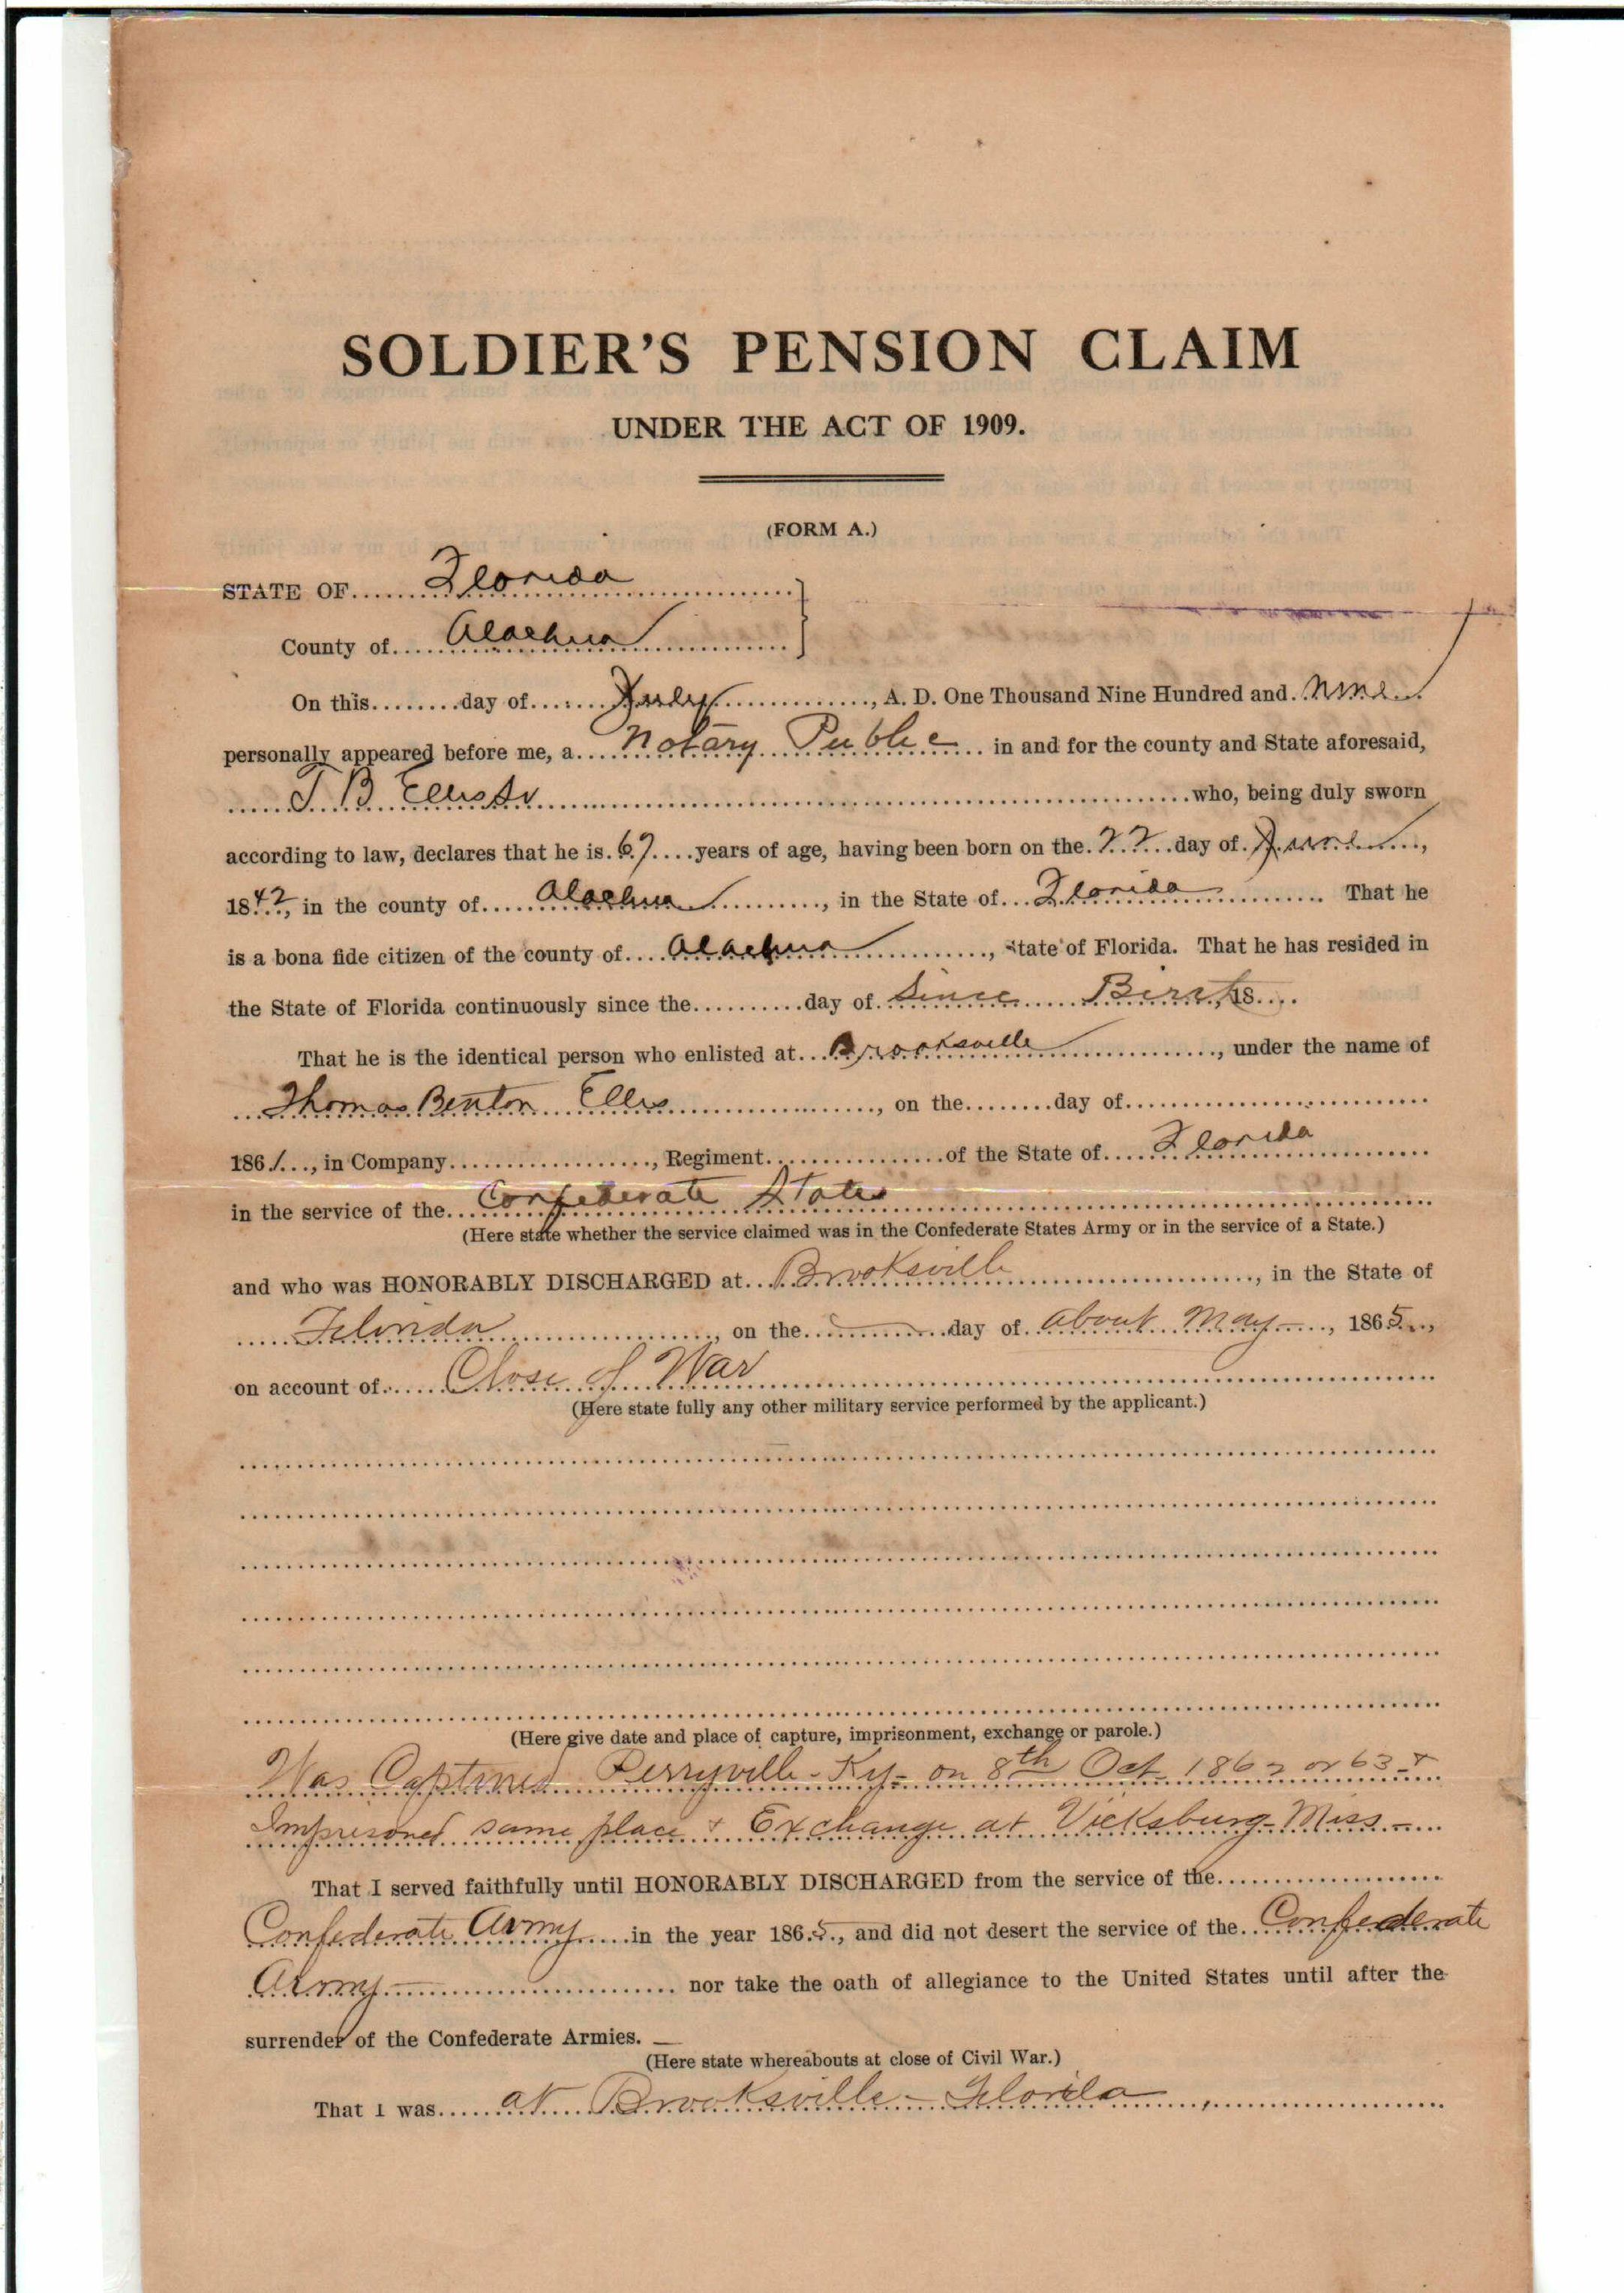 SOLDIER'S PENSION CLAIM
UNDER THE ACT OF 1909.
(FORM A.)
STATE OF Florida
County of Alachua
On this day of July, A. D. One Thousand Nine Hundred and Nine
personally appeared before me, a Notary Public in and for the county and State aforesaid,
T B Ellis Sr who, being duly sworn
according to law, declares that he is 67 years of age, having been born on the 22 day of June,
1842, in the county of Alachua, in the State of Florida That he
is a bona fide citizen of the county of Alachua, State of Florida. That he has resided in
the State of Florida continuously since the day of Since Birth, 18
That he is the identical person who enlisted at Brooksville, under the name of
Thomas Benton Ellis, on the day of
1861, in Company, Regiment of the State of Florida
in the service of the Confederate States
(Here state whether the service claimed was in the Confederate States Army or in the service of a State.)
and who was HONORABLY DISCHARGED at Brooksville, in the State of
Florida, on the day of about May, 1865,
on account of Close of War
(Here state fully any other military service performed by the applicant.)
(Here give date and place of capture, imprisonment, exchange or parole.)
Was Captured Perryville - Ky - on 8th Oct 1862 or 63 - &
Imprisoned same place & Exchange at Vicksburg - Miss -
That I served faithfully until HONORABLY DISCHARGED from the service of the
Confederate Army in the year 1865, and did not desert the service of the Confederate
Army nor take the oath of allegiance to the United States until after the
surrender of the Confederate Armies.
(Here state whereabouts at close of Civil War.)
That I was at Brooksville - Florida